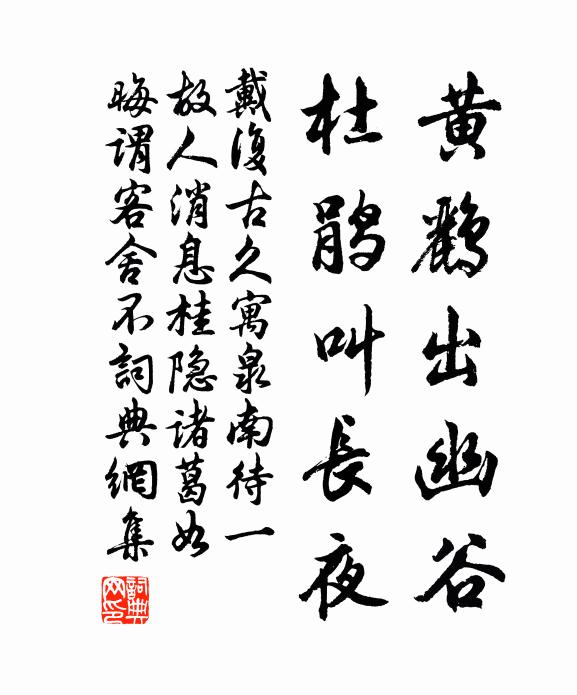 黄鹂出幽谷
杜鹃叫長夜
戴復古久寓泉南待一
故人消息桂隐诸葛如
晦谓客舍不詞典網集
詞典网印